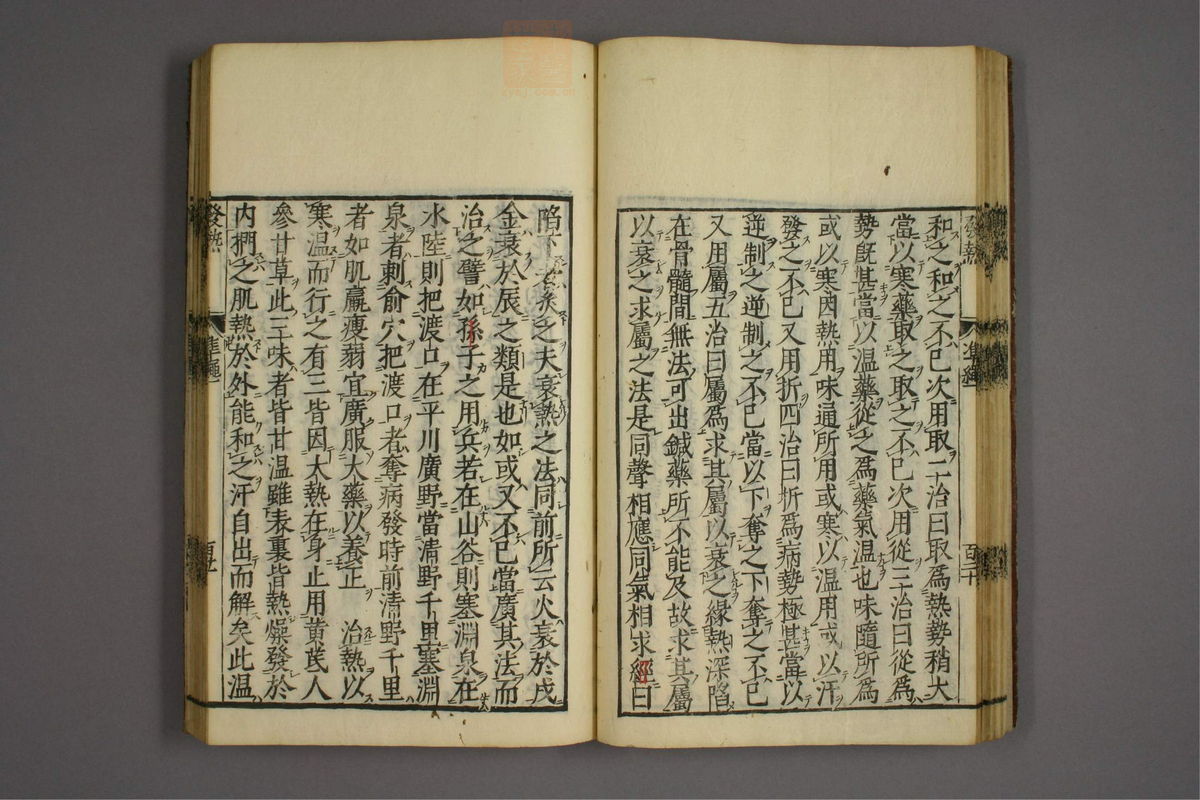 和之和之不已次用取二治曰取爲熱勢稍大
當以寒藥取之取之不已次用從三治曰從爲
勢旣甚當以温藥從之爲藥氣温也味隨所爲
或以寒因熱用味通所用或寒以温用或以汗
發之不已又用折四治曰折爲病勢極甚當以
逆制之逆制之不已當以下奪之下奪之不已
又用屬五治曰屬爲求其屬以衰之緣熱深陷
在骨髓間無法可出鍼藥所不能及故求其屬
以衰之求屬之法是同聲相應同氣相求經曰
陷下者矣之夫衰熱之法同前所云火衰於戌
金衰於辰之類是也如或又不已當廣其法而
治之譬如孫子之用兵若在山谷則塞淵泉在
水陸則把渡口在平川廣野當清野千里塞淵
泉者刺俞穴把渡口者奪病發時前清野千里
者如肌羸瘦弱宜廣服大藥以養正 治熱以
寒温而行之有三皆因大熱在身止用黄芪人
參甘草此三味者皆甘温雖表裏皆熱燥發於
内捫之肌熱於外能和之汗自出而解矣此温
發熱 準繩